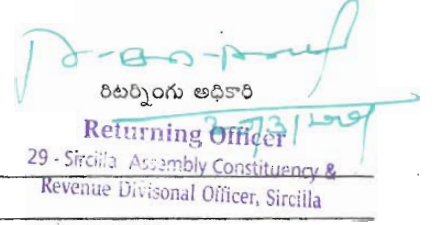 రిటర్నింగు అధికారి
Returning Officer
29 - Sircilla Assembly Constituency &
Revenue Divisonal Officer, Sircilla